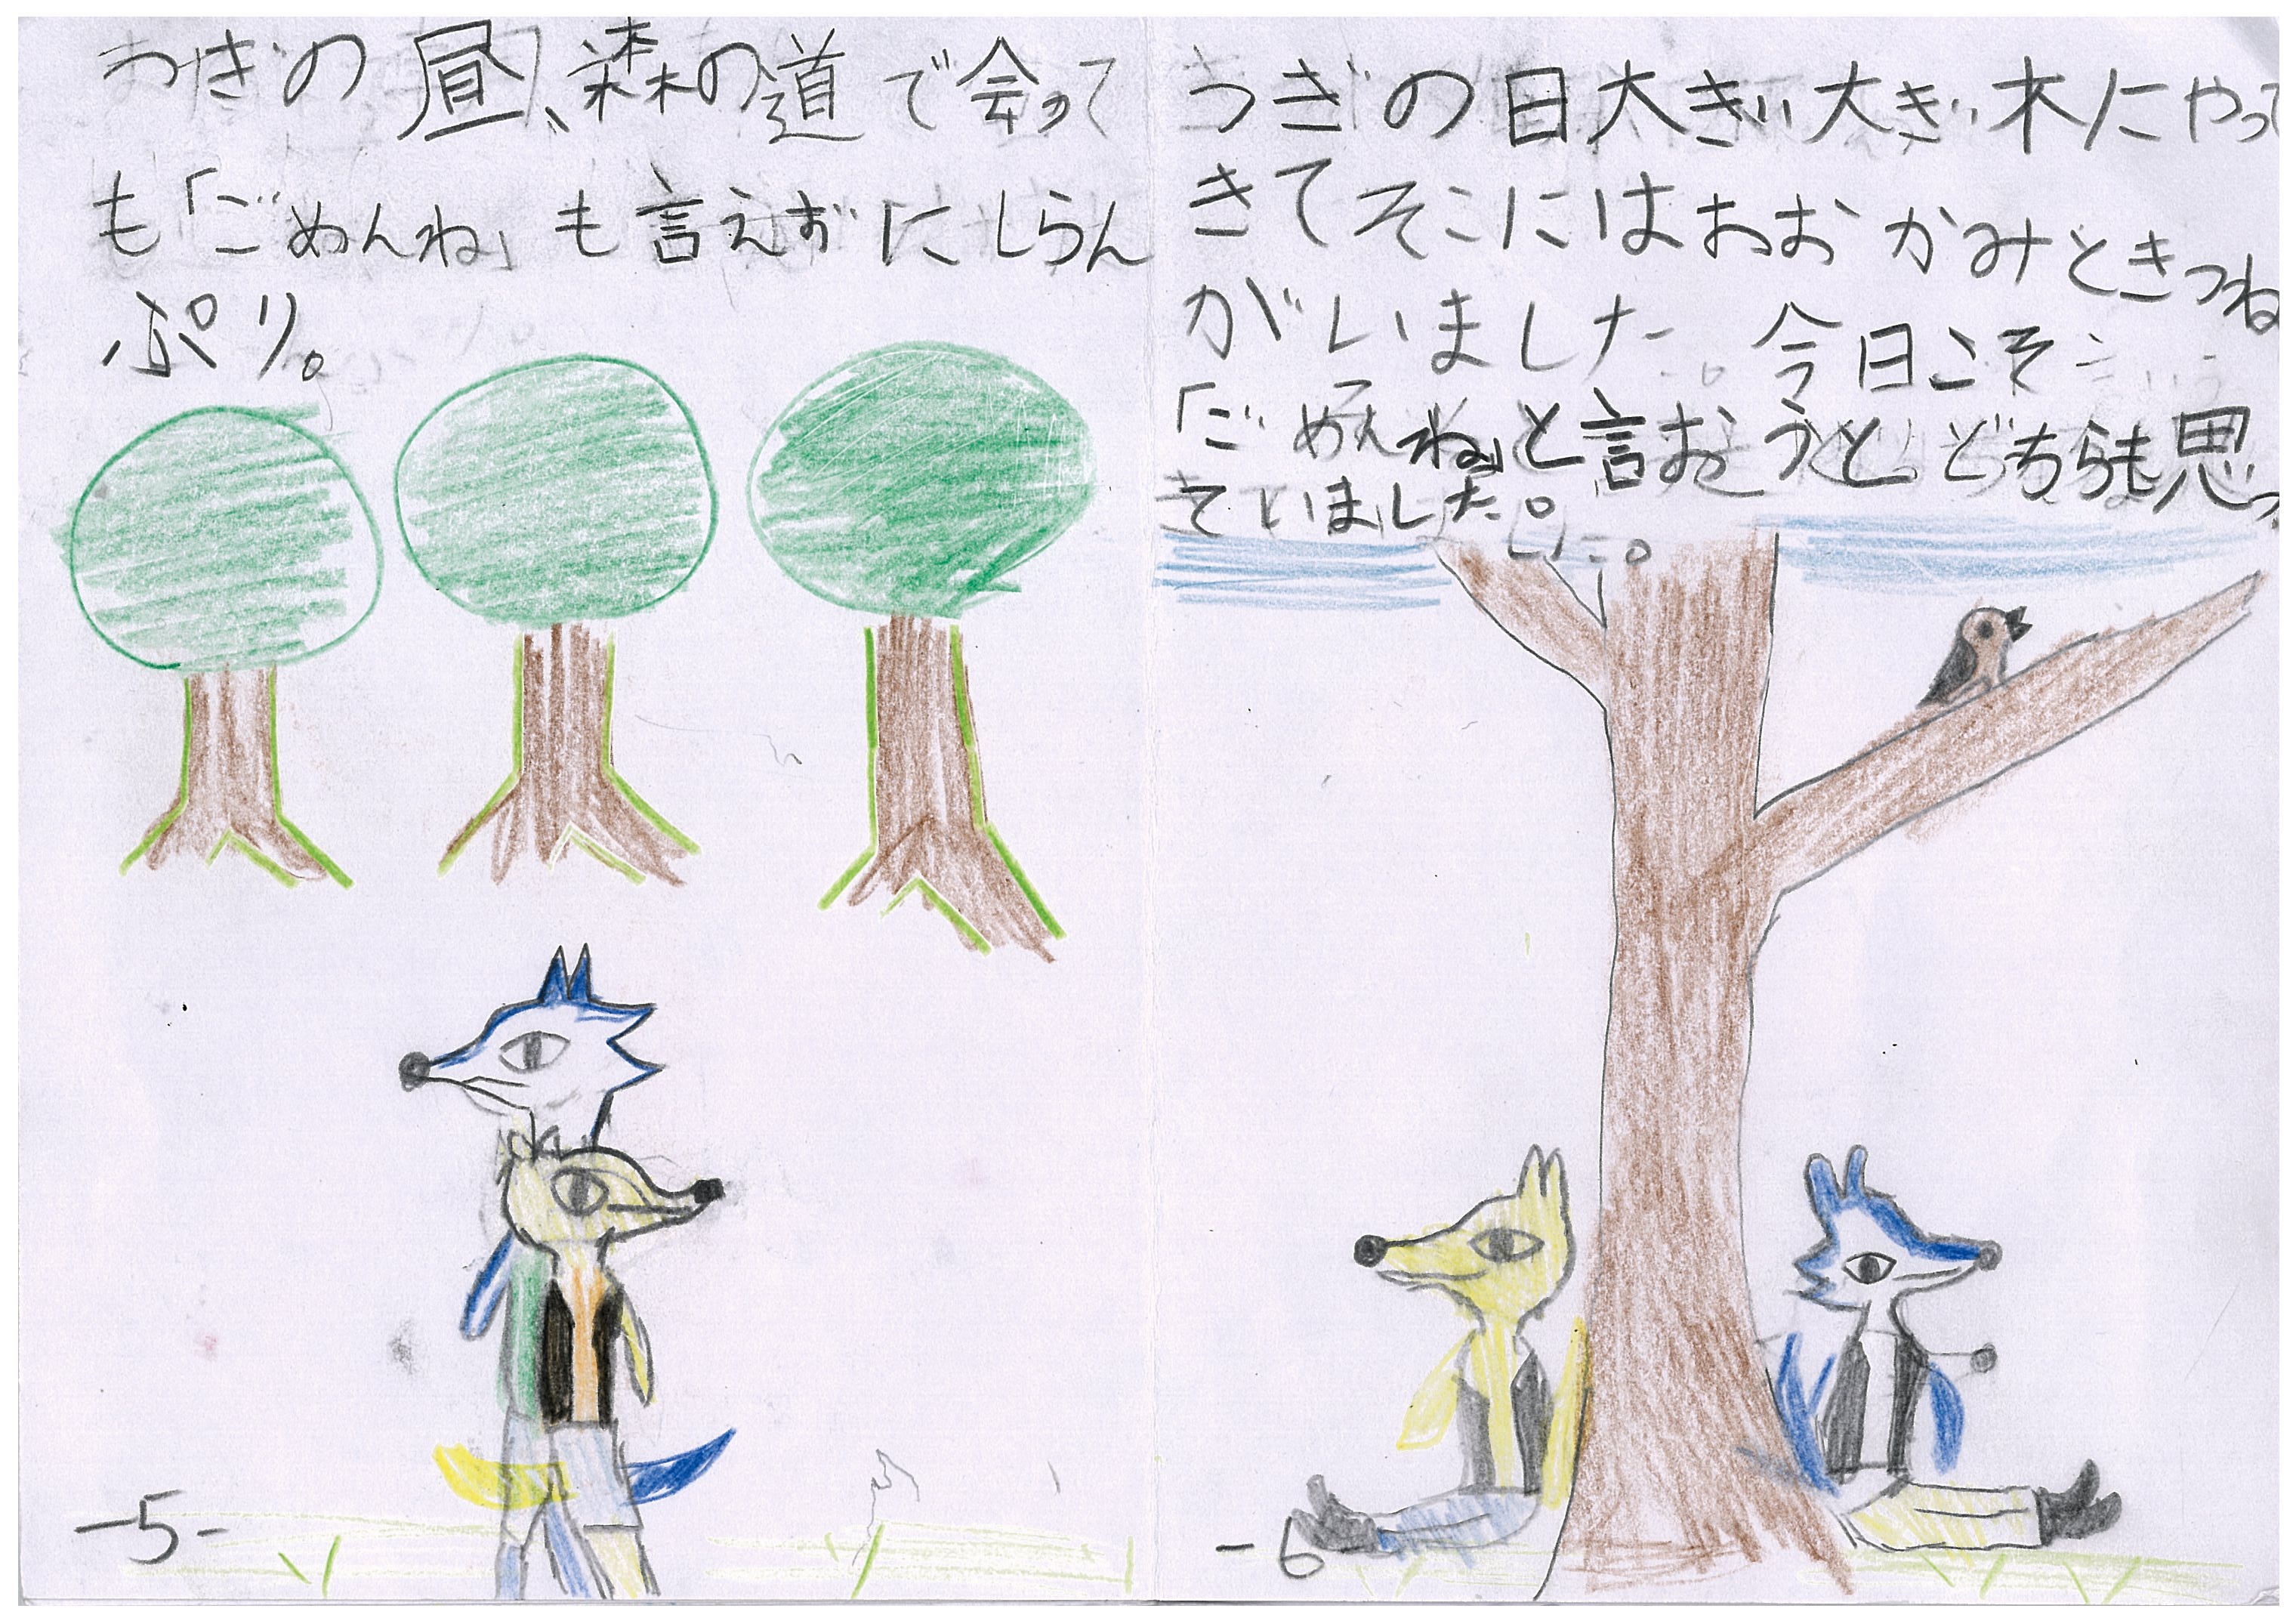 つぎの昼、森の道で会って
も「ごめんね」も言えずにしらん
ぷり。
-5-
つぎの日大きい大きい木にやって
きてそこにはおおかみときつね
がいました。今日こそ
「ごめんね」と言おうと、どちらも思っ
ていました。
-6